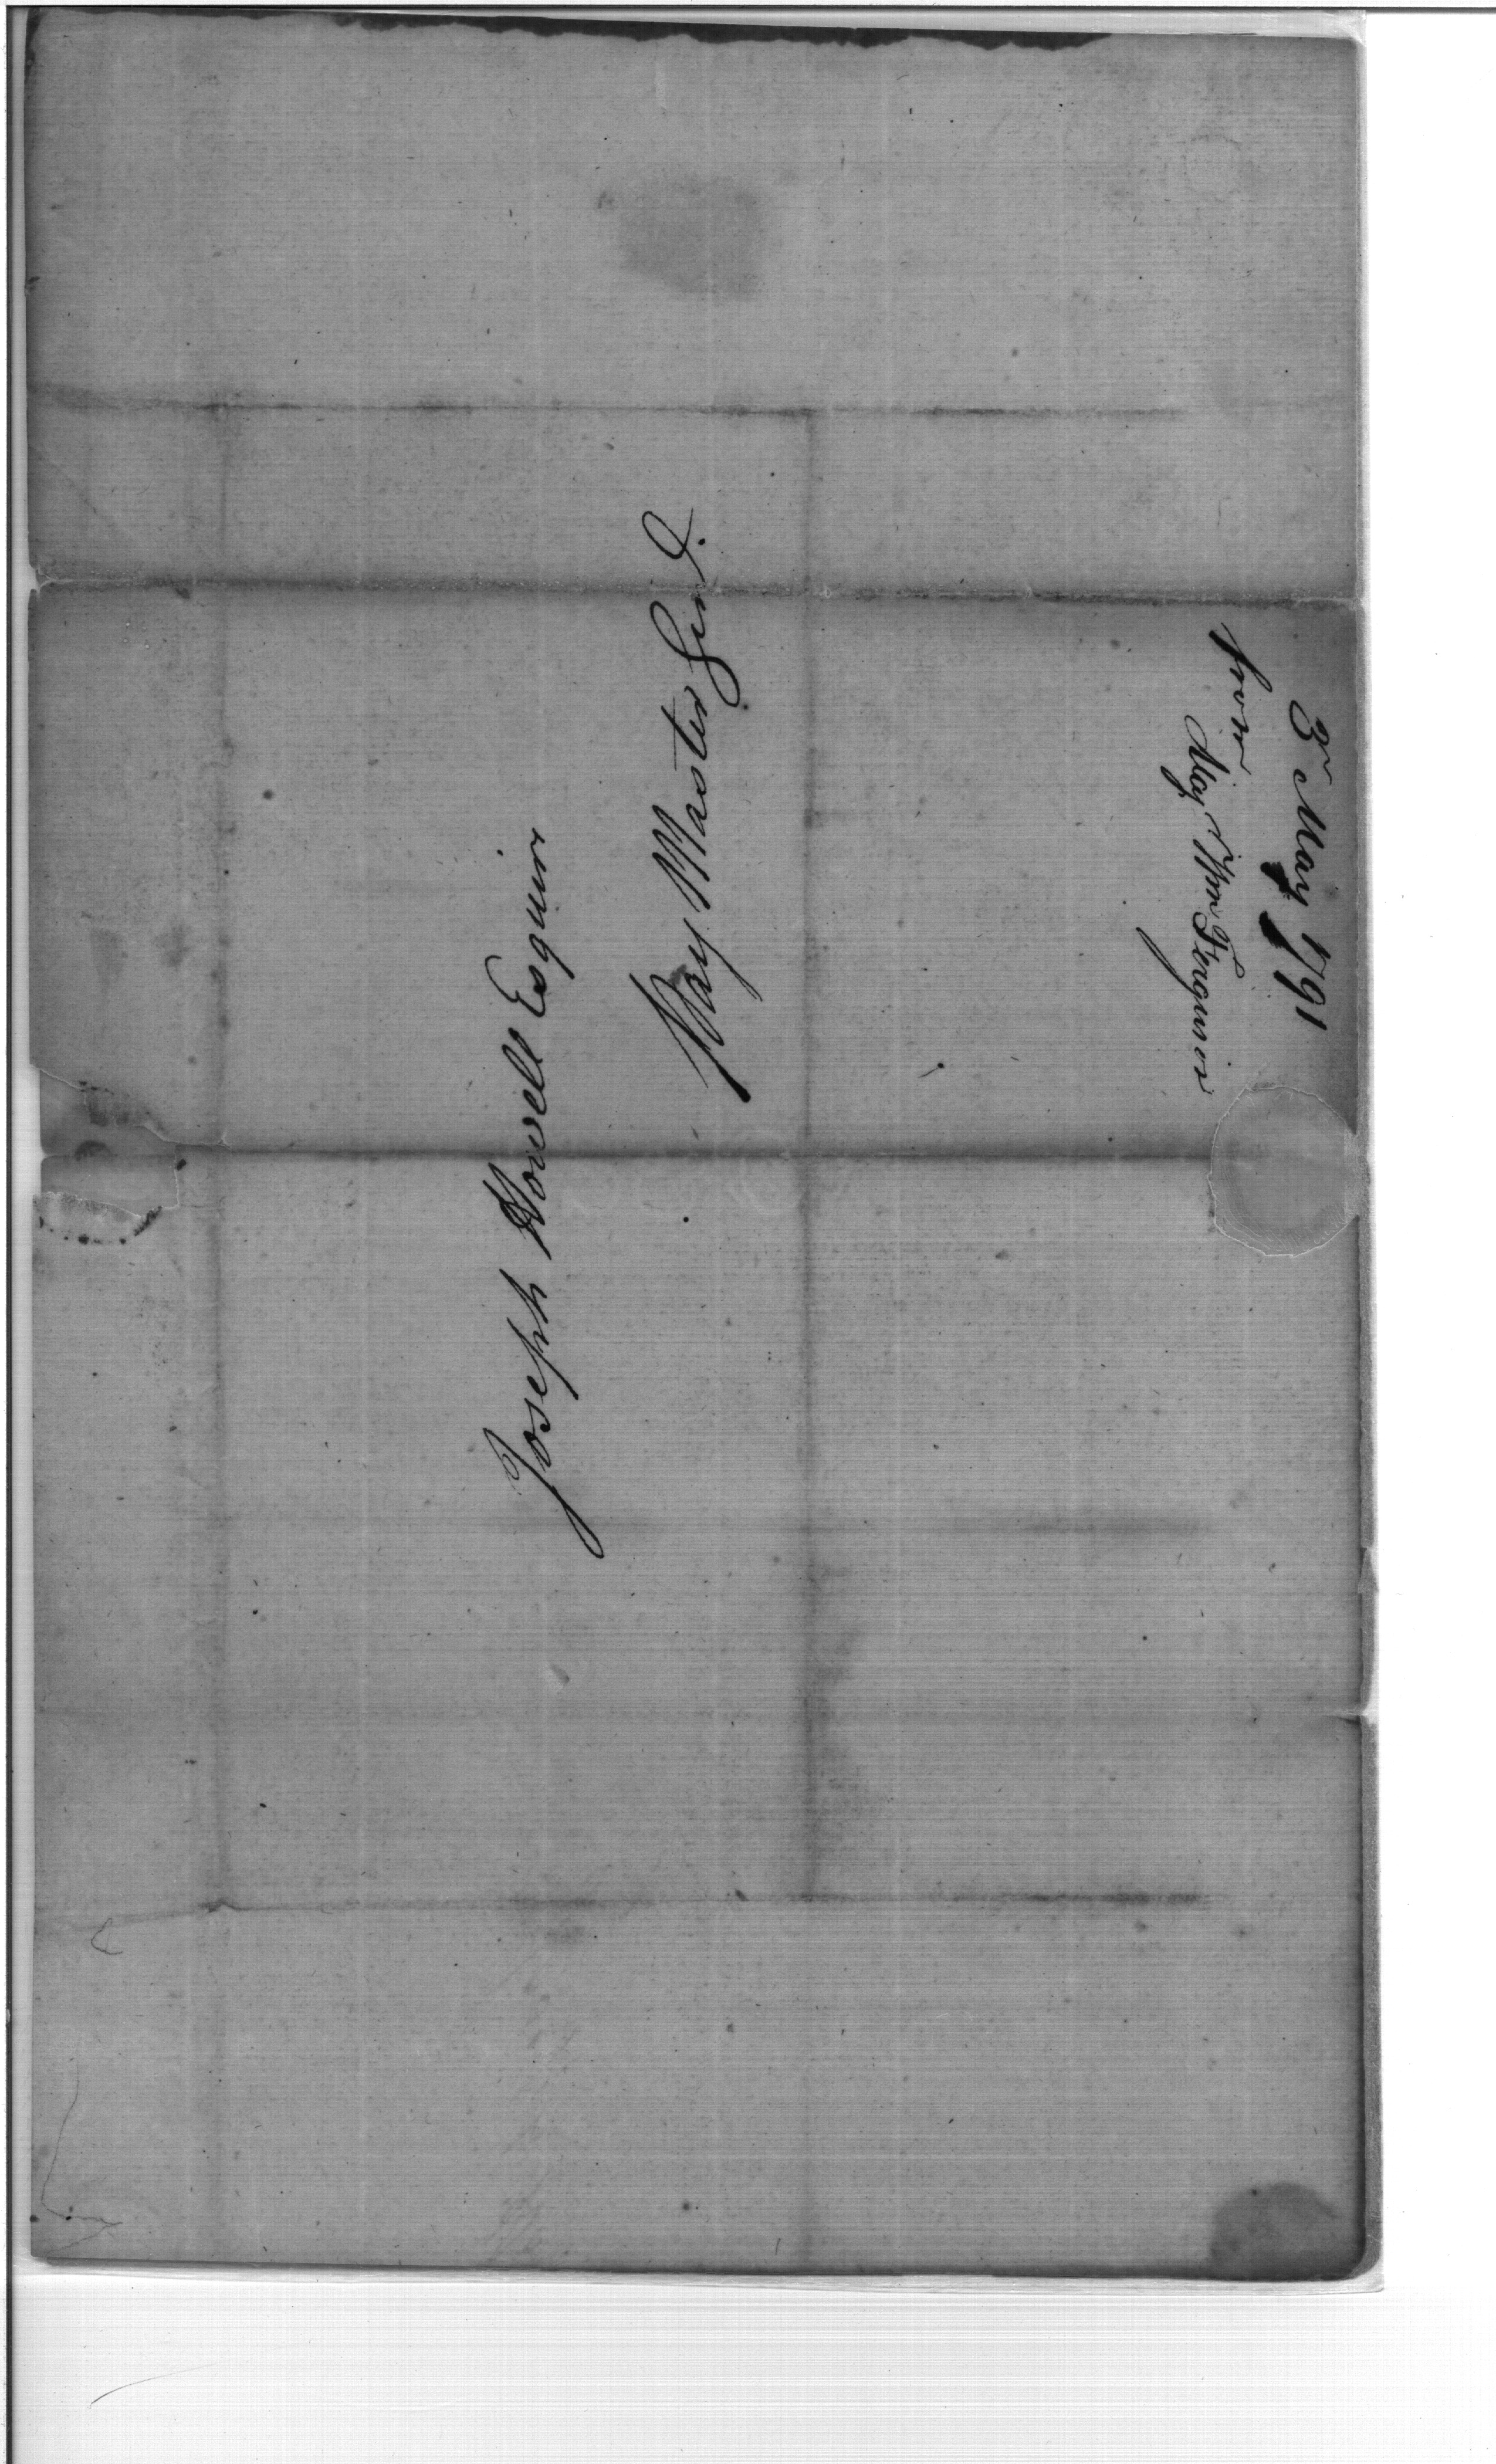 Joseph Howell Esquire
Pay Master Genl.
3d May 1791
from
Maj Wm Ferguson